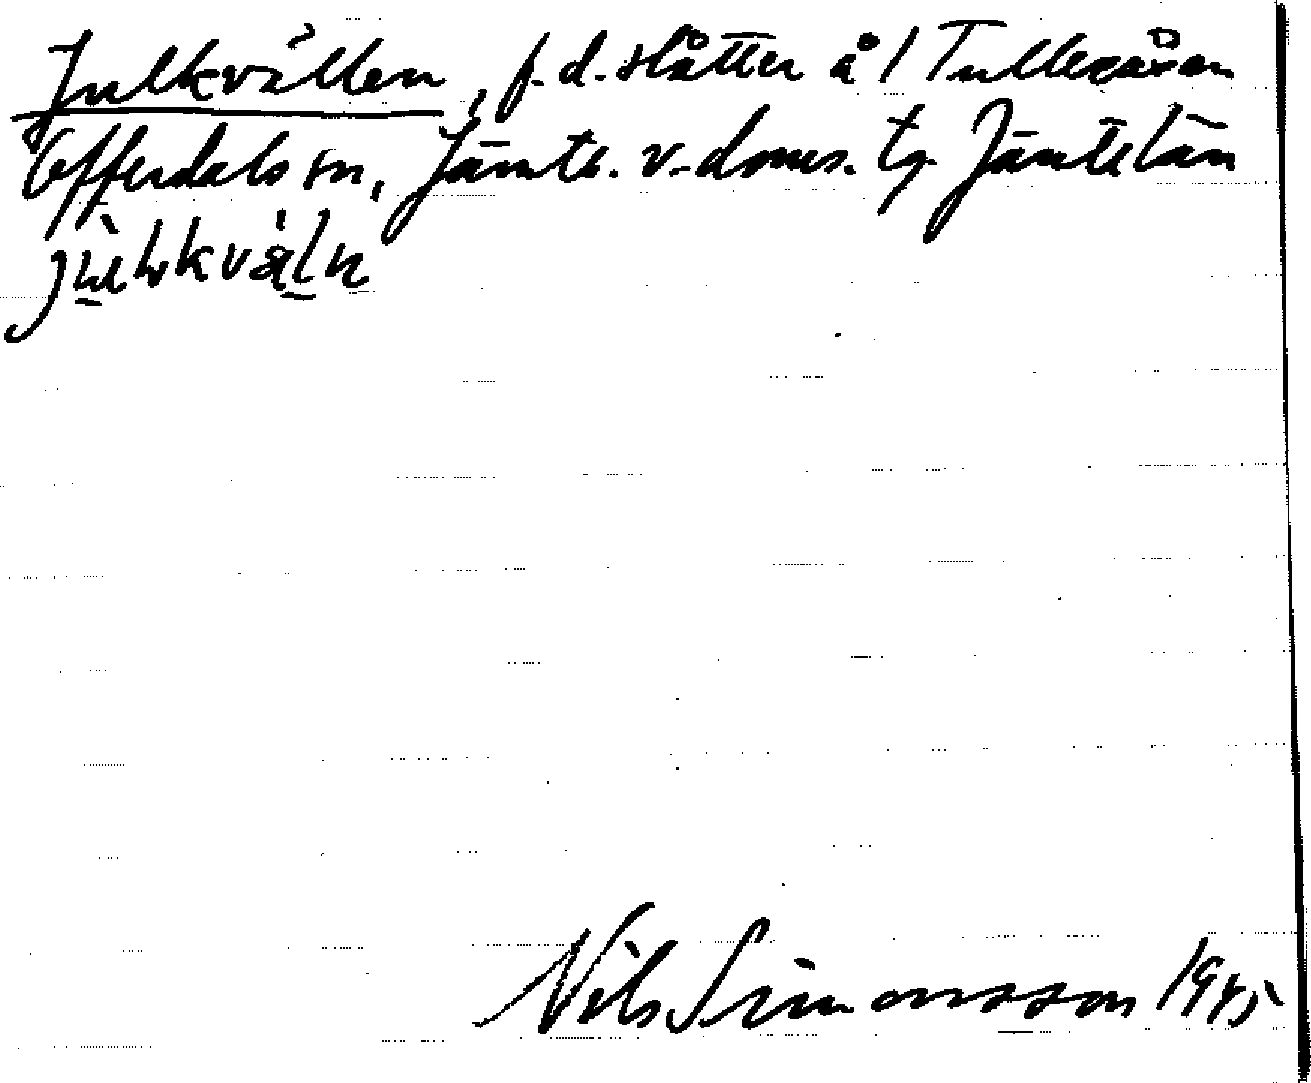 Julkvällen, f.d. slåtter å / Tulleråsen
Offerdals sn, Jämtl. v. doms. tg. Jämtl. län
Nils Simonsson 1945